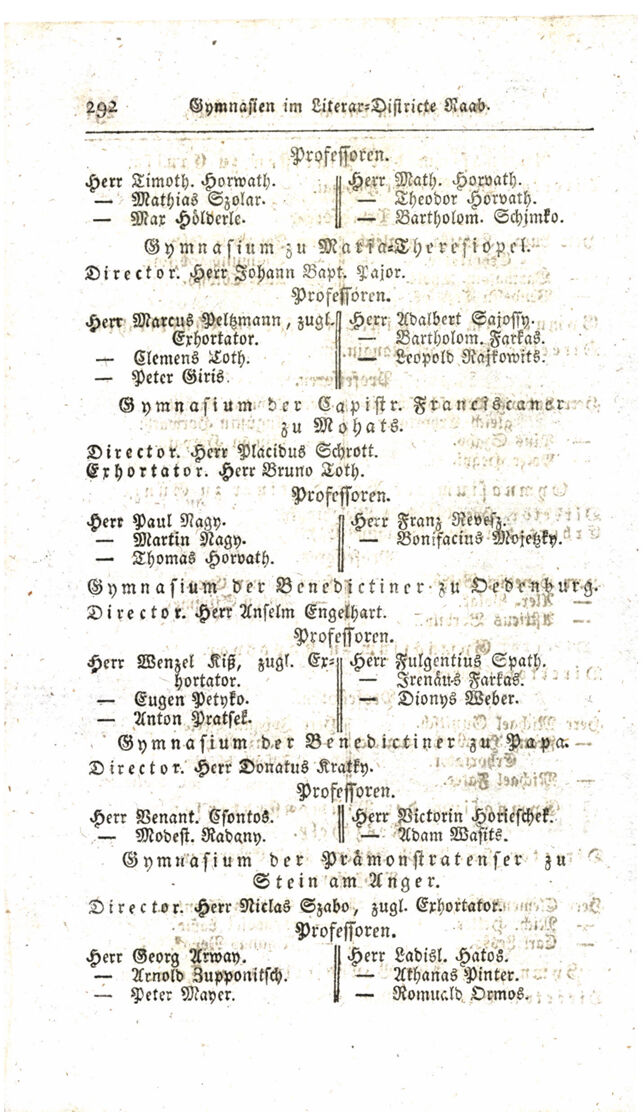 292 Gymnasien im Literar-Districte Raab.
Professoren.
Herr Timoth. Horwath.
— Mathias Szolar.
— Max Hölderle.
Herr Math. Horvath.
— Theodor Horvath.
— Bartholom. Schimko.
Gymnasium zu Maria-Theresiopel.
Director. Herr Johann Bapt. Pajor.
Professoren.
Herr Marcus Peltzmann, zugl.
Exhortator.
— Clemens Toth.
— Peter Giris.
Herr Adalbert Sajossy.
— Bartholom. Farkas.
— Leopold Rajkowits.
Gymnasium der Capistr. Franciscaner
zu Mohats.
Director. Herr Placidus Schrott.
Exhortator. Herr Bruno Toth.
Professoren.
Herr Paul Nagy.
— Martin Nagy.
— Thomas Horvath.
Herr Franz Revesz.
— Bonifacius Mojetzky.
Gymnasium der Benedictiner zu Oedenburg.
Director. Herr Anselm Engelhart.
Professoren.
Herr Wenzel Kiß, zugl. Ex-
hortator.
— Eugen Petyko.
— Anton Pratsek.
Herr Fulgentius Spath.
— Irenäus Farkas.
— Dionys Weber.
Gymnasium der Benedictiner zu Papa.
Director. Herr Donatus Kratky.
Professoren.
Herr Venant. Csontos.
— Modest. Radany.
Herr Victorin Horieschek.
— Adam Wasits.
Gymnasium der Prämonstratenser zu
Stein am Anger.
Director. Herr Niclas Szabo, zugl. Exhortator.
Professoren.
Herr Georg Arway.
— Arnold Zupponitsch.
— Peter Mayer.
Herr Ladisl. Hatos.
— Athanas Pinter.
— Romuald Ormos.